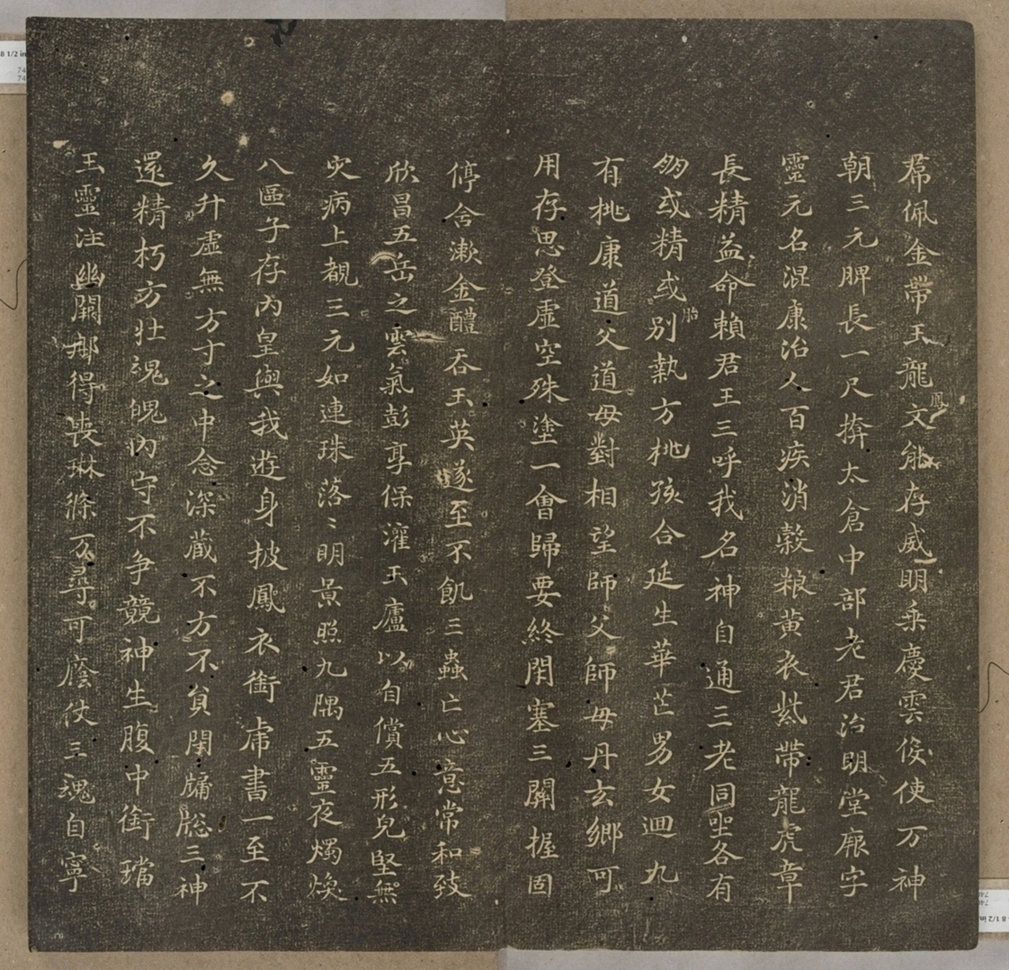 帬佩金帶玉龍鳳文能存威明乘慶雲役使万神
朝三元脾長一尺掩太倉中部老君治明堂厥字
靈元名混康治人百疾消穀粮黃衣紫帶龍虎章
長精益命賴君王三呼我名神自通三老同坐各有
朋或精或胎別執方桃孩合延生華芒男女迴九
有桃康道父道母對相望師父師母丹玄鄉可
用存思登虛空殊塗一會歸要終閇塞三關握固
停含漱金醴吞玉英遂至不飢三蟲亡心意常和致
欣昌五岳之雲氣彭亨保灌玉廬以自償五形完堅無
灾病上覩三元如連珠落〻明景照九隅五靈夜燭煥
八區子存內皇與我遊身披鳳衣銜虎書一至不
久升虛無方寸之中念深藏不方不員閇牖牕三神
還精朽方壯魂魄內守不争競神生腹中銜璫
玉靈注幽闕那得喪琳條万尋可蔭仗三魂自寧